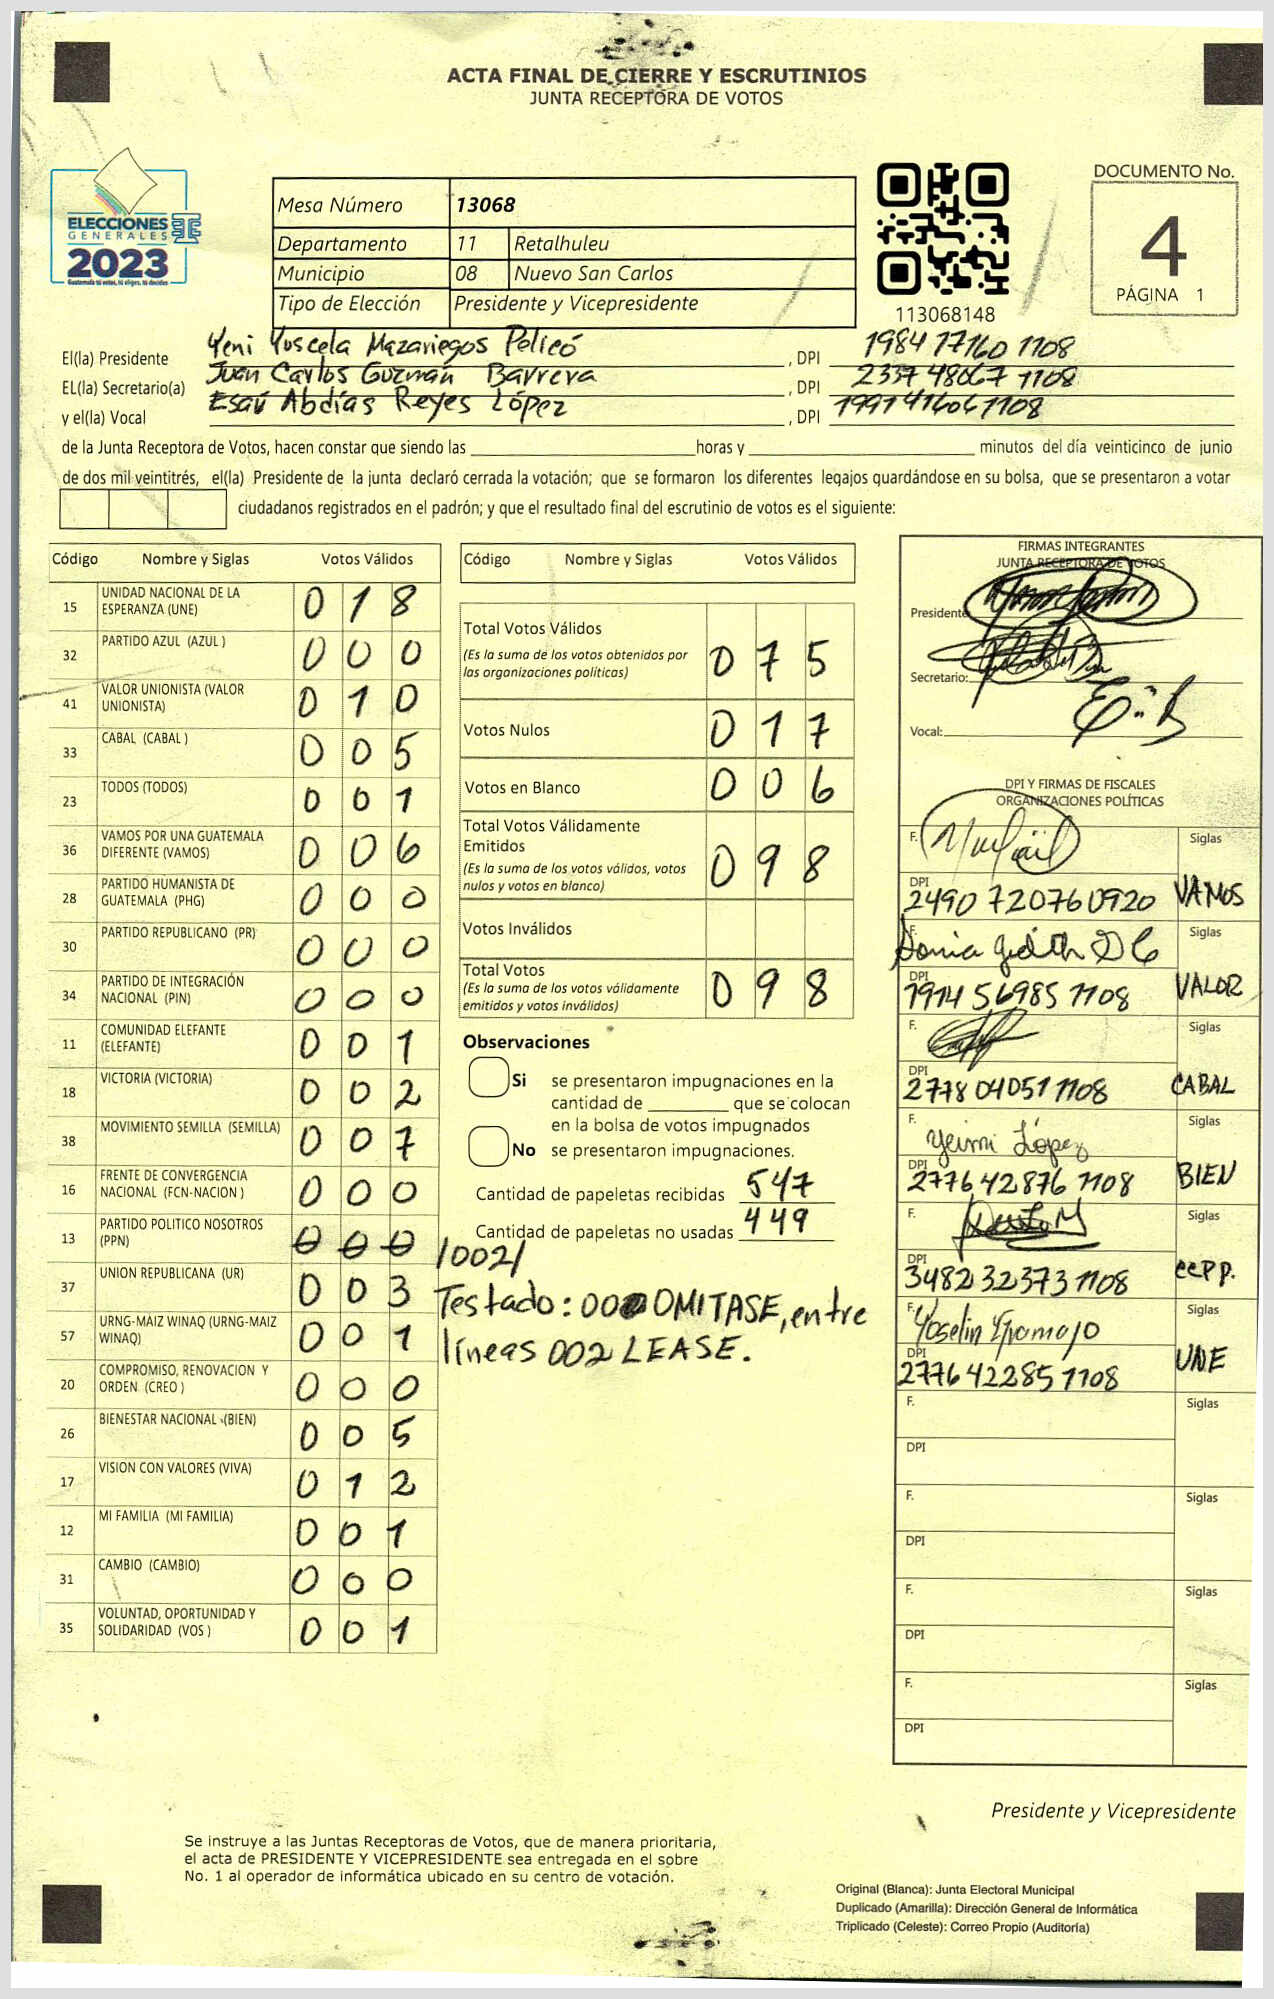 ACTA FINAL DE CIERRE Y ESCRUTINIOS
JUNTA RECEPTORA DE VOTOS
ELECCIONES
GENERALES
2023
Guatemala tú votas, tú eliges, tú decides
Mesa Número 13068
Departamento 11 Retalhuleu
Municipio 08 Nuevo San Carlos
Tipo de Elección Presidente y Vicepresidente
113068148
DOCUMENTO No.
4
PÁGINA 1
El(la) Presidente Yeni Yuscela Mazariegos Policó , DPI 1984 17160 1108
EL(la) Secretario(a) Juan Carlos Guzmán Barrera , DPI 2337 48067 1108
y el(la) Vocal Esaú Abdías Reyes López , DPI 1991 41606 1108
de la Junta Receptora de Votos, hacen constar que siendo las horas y minutos del día veinticinco de junio
de dos mil veintitrés, el(la) Presidente de la junta declaró cerrada la votación; que se formaron los diferentes legajos guardándose en su bolsa, que se presentaron a votar
ciudadanos registrados en el padrón; y que el resultado final del escrutinio de votos es el siguiente:
Código Nombre y Siglas Votos Válidos
15 UNIDAD NACIONAL DE LA ESPERANZA (UNE) 0 1 8
32 PARTIDO AZUL (AZUL ) 0 0 0
41 VALOR UNIONISTA (VALOR UNIONISTA) 0 1 0
33 CABAL (CABAL ) 0 0 5
23 TODOS (TODOS) 0 0 1
36 VAMOS POR UNA GUATEMALA DIFERENTE (VAMOS) 0 0 6
28 PARTIDO HUMANISTA DE GUATEMALA (PHG) 0 0 0
30 PARTIDO REPUBLICANO (PR) 0 0 0
34 PARTIDO DE INTEGRACIÓN NACIONAL (PIN) 0 0 0
11 COMUNIDAD ELEFANTE (ELEFANTE) 0 0 1
18 VICTORIA (VICTORIA) 0 0 2
38 MOVIMIENTO SEMILLA (SEMILLA) 0 0 7
16 FRENTE DE CONVERGENCIA NACIONAL (FCN-NACION ) 0 0 0
13 PARTIDO POLITICO NOSOTROS (PPN) 0 0 0 /002/
37 UNION REPUBLICANA (UR) 0 0 3
57 URNG-MAIZ WINAQ (URNG-MAIZ WINAQ) 0 0 1
20 COMPROMISO, RENOVACION Y ORDEN (CREO ) 0 0 0
26 BIENESTAR NACIONAL (BIEN) 0 0 5
17 VISION CON VALORES (VIVA) 0 1 2
12 MI FAMILIA (MI FAMILIA) 0 0 1
31 CAMBIO (CAMBIO) 0 0 0
35 VOLUNTAD, OPORTUNIDAD Y SOLIDARIDAD (VOS ) 0 0 1
Código Nombre y Siglas Votos Válidos
Total Votos Válidos 0 7 5
(Es la suma de los votos obtenidos por
las organizaciones politicas)
Votos Nulos 0 1 7
Votos en Blanco 0 0 6
Total Votos Válidamente
Emitidos 0 9 8
(Es la suma de los votos válidos, votos
nulos y votos en blanco)
Votos Inválidos
Total Votos 0 9 8
(Es la suma de los votos válidamente
emitidos y votos inválidos)
Observaciones
Si se presentaron impugnaciones en la
cantidad de que se colocan
en la bolsa de votos impugnados
No se presentaron impugnaciones.
Cantidad de papeletas recibidas 547
Cantidad de papeletas no usadas 449
Testado: 000 OMITASE, entre
líneas 002 LEASE.
FIRMAS INTEGRANTES
JUNTA RECEPTORA DE VOTOS
Presidente:
Secretario:
Vocal:
DPI Y FIRMAS DE FISCALES
ORGANIZACIONES POLÍTICAS
F. Siglas
DPI 2490 72076 0920 VAMOS
F. Sonia Judith Siglas
DPI 1914 56985 1108 VALOR
F. Siglas
DPI 2778 04051 1108 CABAL
F. Yeimi López Siglas
DPI 2776 42876 1108 BIEN
F. Siglas
DPI 3482 32373 1108 CCPP.
F. Yoselin Siglas
DPI 2776 42285 1108 UNE
F. Siglas
DPI
F. Siglas
DPI
F. Siglas
DPI
F. Siglas
DPI
Presidente y Vicepresidente
Se instruye a las Juntas Receptoras de Votos, que de manera prioritaria,
el acta de PRESIDENTE Y VICEPRESIDENTE sea entregada en el sobre
No. 1 al operador de informática ubicado en su centro de votación.
Original (Blanca): Junta Electoral Municipal
Duplicado (Amarilla): Dirección General de Informática
Triplicado (Celeste): Correo Propio (Auditoría)